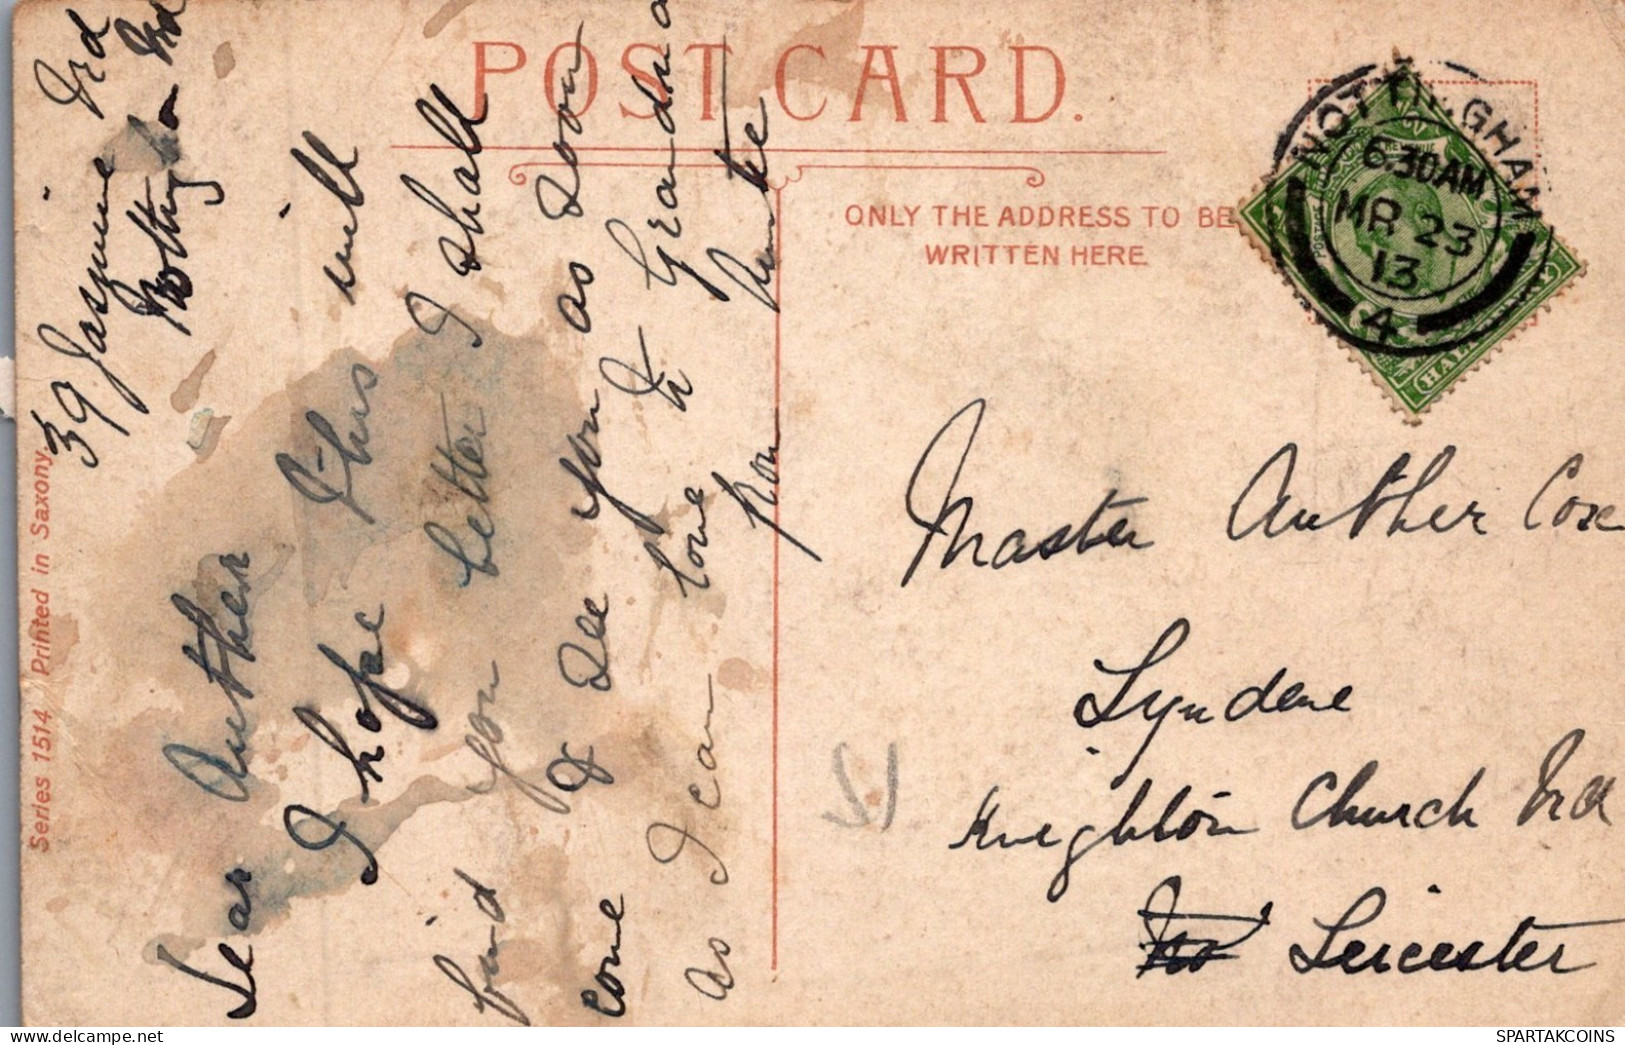 POST CARD.
ONLY THE ADDRESS TO BE
WRITTEN HERE
NOTTINGHAM
6.30AM
MR 23
13
4
Master Auther Cox
Lyndene
Knighton Church Rd
Leicester
39 Jasmine Rd
Nottingham Rd
Dear Auther
I hope this will
find you better I shall
come & see you as soon
as I can love to Grandma
Series 1514 Printed in Saxony.
SPARTAKCOINS
SPARTAKCOINS.COM